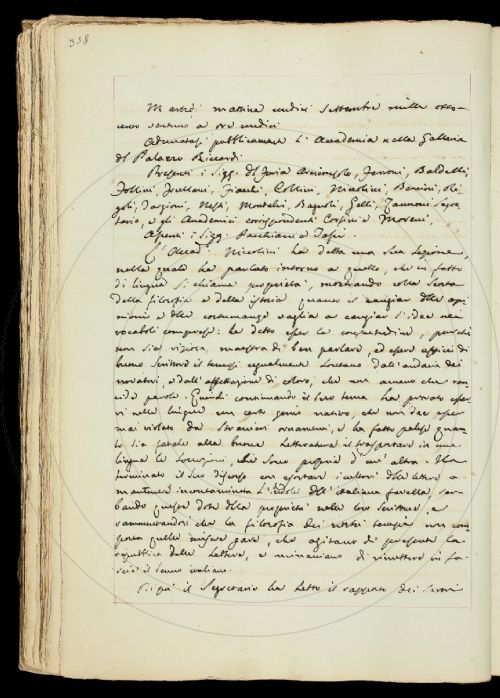 338
Martedì mattina undici Settembre mille otto-
cento ventuno a ore undici
Adunatasi pubblicamente l'Accademia nella Galleria
del Palazzo Riccardi
Presenti i Sigg. Del Furia Arciconsolo, Ferroni, Baldelli
Follini, Fruttani, Fiacchi, Collini, Nicolini, Bencini, Ri-
goli, Targioni, Nesti, Montalvi, Bagnoli, Gelli, Zannoni Segre-
tario, e gli Accademici corrispondenti Corsini e Moreni,
Assenti i Sigg. Pacchiani e
L'Accad. Nicolini ha detta una sua lezione,
nella quale ha parlato intorno a quello, che in fatto
di lingua si chiama proprietà, mostrando colla scorta
della filosofia e della istoria quanto il cangiar delle opi-
nioni e delle costumanze vaglia a cangiar l'idee nei
vocaboli compresi: ha detto esser la consuetudine, purché
non sia viziosa, maestra di ben parlare, ed essere uffizio di
buono Scrittore il tenersi egualmente lontano dall'audacia dei
novatori, e dall'affettazione di coloro, che non amano che ran-
cide parole. Quindi continuando il suo tema ha provato esser-
vi nelle lingue un certo genio nativo, che non dee esser
mai violato da stranieri ornamenti, e ha fatto palese quan-
to sia fatale alla buona letteratura il trasportare in una
lingua le locuzioni, che sono proprie d'un'altra. Ha
terminato il suo discorso con esortare i cultori delle lettere a
mantenere incontaminata l'indole dell'italiana favella, ser-
bando questa dote della proprietà nelle loro scritture, e
rammentandosi che la filosofia dei nostri tempi non com-
porta quelle misere gare, che agitano di presente la
repubblica delle lettere, e minacciano di rimettere in fa-
scie il senno italiano.
il Segretario ha letto il rapporto dei lavori